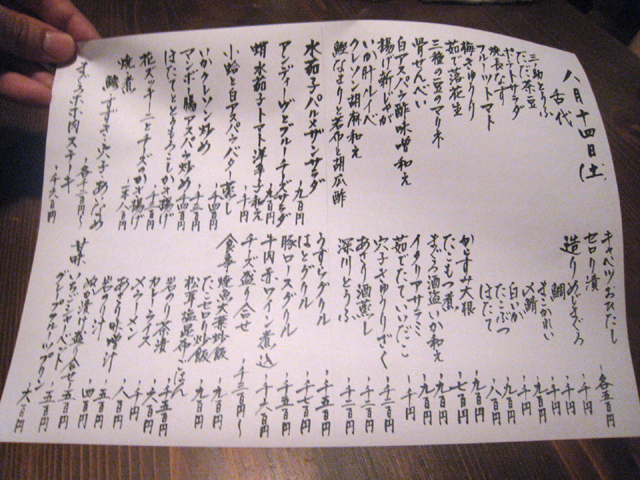 八月十四日(土)
舌代
三切とうふ
だだ茶豆
ポテトサラダ
焼長なす
フルーツトマト
梅きゅうり
茹で落花生
三種の豆のマリネ
骨せんべい
白アスパラ酢味噌和え
揚げ新じゃが
いか肝ルイベ
クレソン胡麻和え
鰹なまりと若布と胡瓜酢
キャベツおひたし
セロリ漬
造り
鯛
〆鯖
白いか
たこぶつ
ほたて
からすみ大根
たこもつ煮
まぐろ酒盗いか和え
イタリアサラミ
茹でたていいだこ
穴子きゅうりざく
あさり酒蒸し
深川とうふ
各五百円
水茄子パルメザンサラダ 九百円
アンディーヴとブルーチーズサラダ 九百円
蛸水茄子トマト洋辛子和え 千円
小蛤と白アスパラバター蒸し 千四百円
いかクレソン炒め 千三百円
マンボー腸アスパラ炒め 千四百円
ほたてととうもろこしかき揚げ 千三百円
花ズッキーニとチーズのかき揚げ 二千八百円
焼、煮
鱸 すずき 穴子 あいなめ 各千二百円〜
まぐろホホ肉ステーキ 千六百円
うずらグリル 千五百円
はとグリル 千七百円
豚ロースグリル 千五百円
牛肉赤ワイン煮込 千六百円
チーズ盛り合せ 千三百円〜
食事
焼魚大葉炒飯 九百円
たこセロリ炒飯 九百円
松茸塩昆布ごはん 千五百円
岩のり茶漬 九百円
カレーライス 六百円
〆ラーメン 千円
あさり味噌汁 八百円
岩のり汁 五百円
ぬか漬け盛り合せ 四百円
甘味
いちごシャーベット 五百円
グレープフルーツプリン 六百円